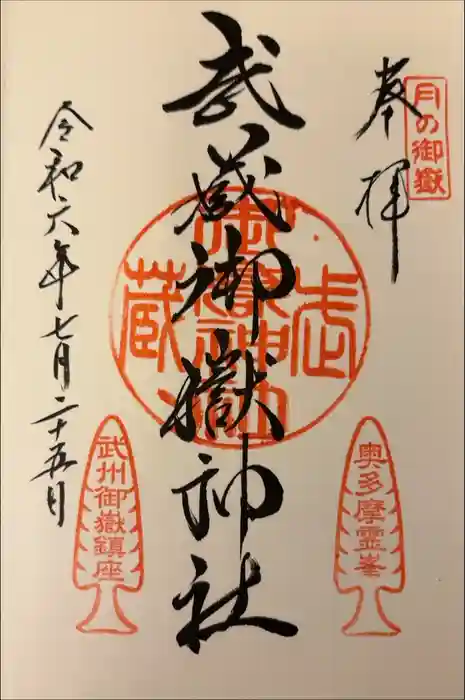 月の御嶽
奉拝
武蔵御嶽神社
令和六年七月二十五日
奥多摩霊峯
武州御嶽鎮座
武蔵
御嶽神社